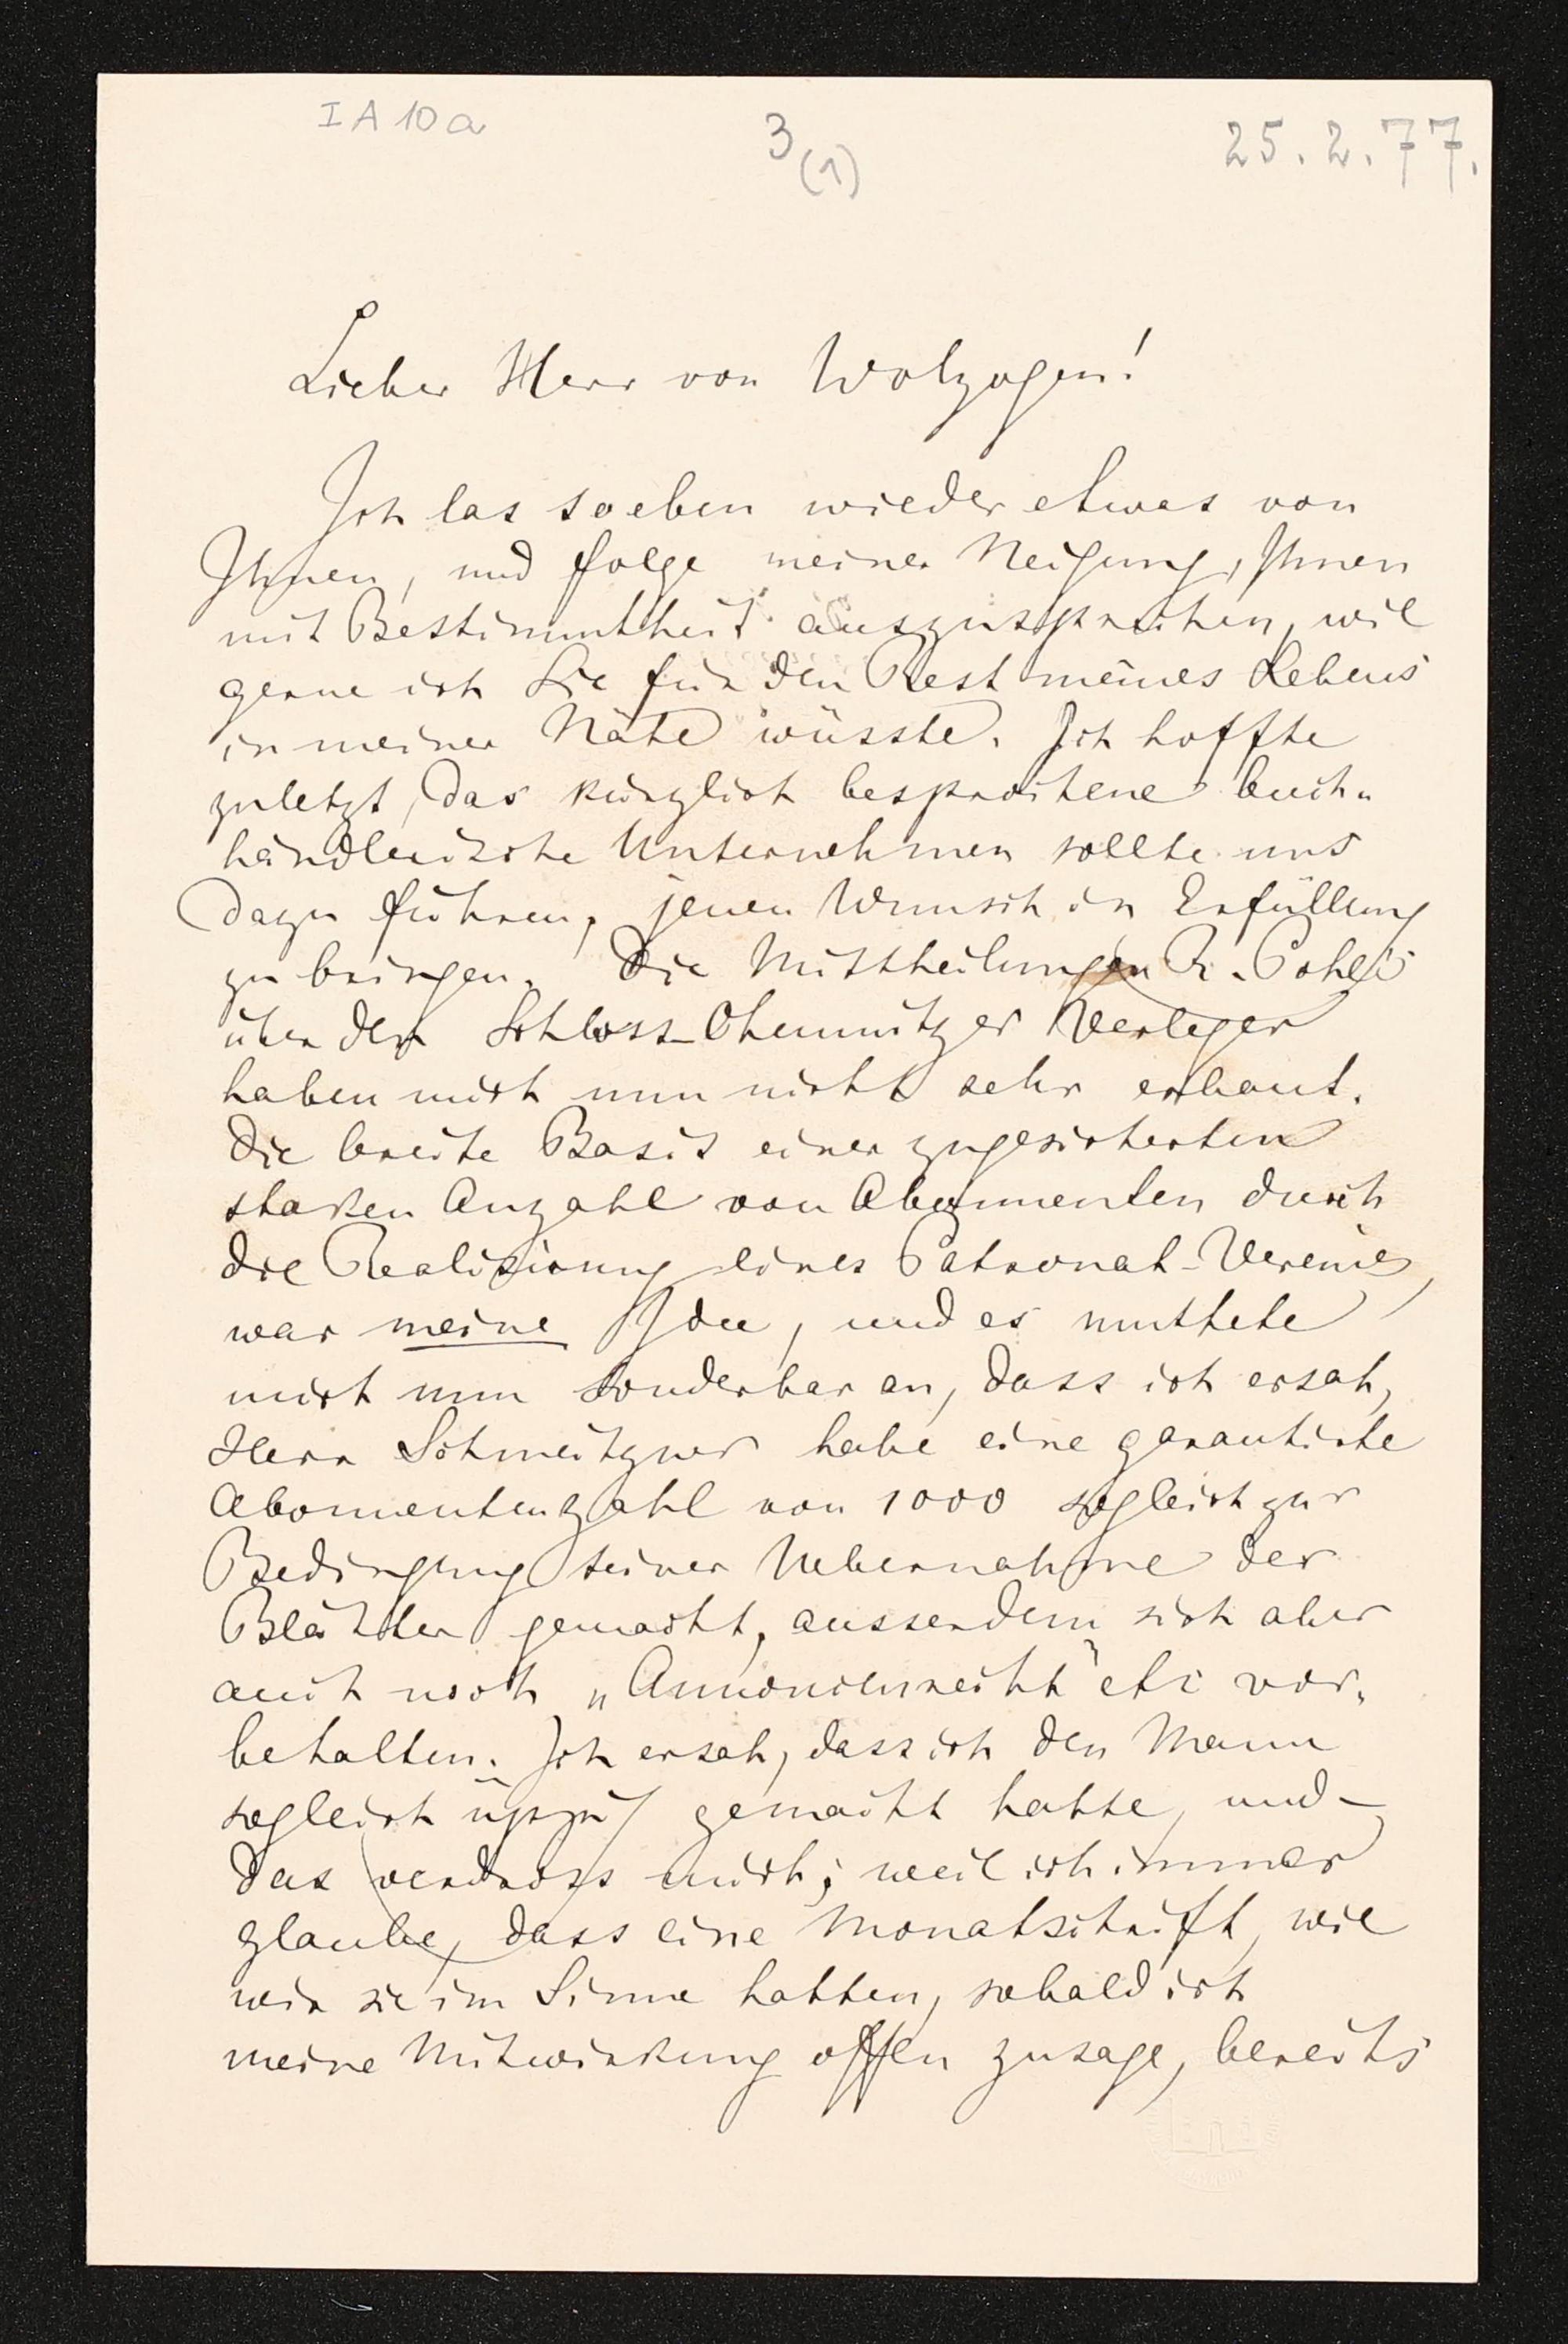 I A 10 a
3 (1)
25.2.77.
Lieber Herr von Wolzogen!
Ich las soeben wieder etwas von
Ihnen, und folge meiner Neigung, Ihnen
mit Bestimmtheit auszusprechen, wie
gerne ich Sie für den Rest meines Lebens
in meiner Nähe wüsste. Ich hoffte
zuletzt, das kürzlich besprochene buch-
händlerische Unternehmen sollte uns
dazu führen, jenen Wunsch in Erfüllung
zu bringen. Die Mittheilungen R. Pohl's
über den Schloss-Chemnitzer Verleger
haben mich nun nicht sehr erbaut.
Die breite Basis einer zugesicherten
starken Anzahl von Abonnenten durch
die Realisirung eines Patronat-Vereines,
war meine Idee, und es muthete
mich nun sonderbar an, dass ich ersah,
Herr Schmeitzner habe eine garantirte
Abonnentenzahl von 1000 sogleich zur
Bedingung seiner Uebernahme der
Blätter gemacht, ausserdem sich aber
auch noch „Annoncenrecht" etc vor-
behalten. Ich ersah, dass ich den Mann
sogleich üppig gemacht hatte, und –
das verdross mich; weil ich immer
glaube, dass eine Monatschrift, wie
wir sie im Sinne hatten, sobald ich
meine Mitwirkung offen zusage, bereits